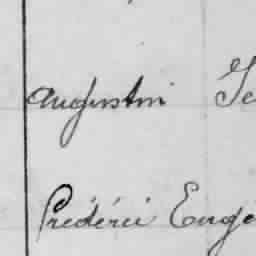 Augustin
Fréderic Euge